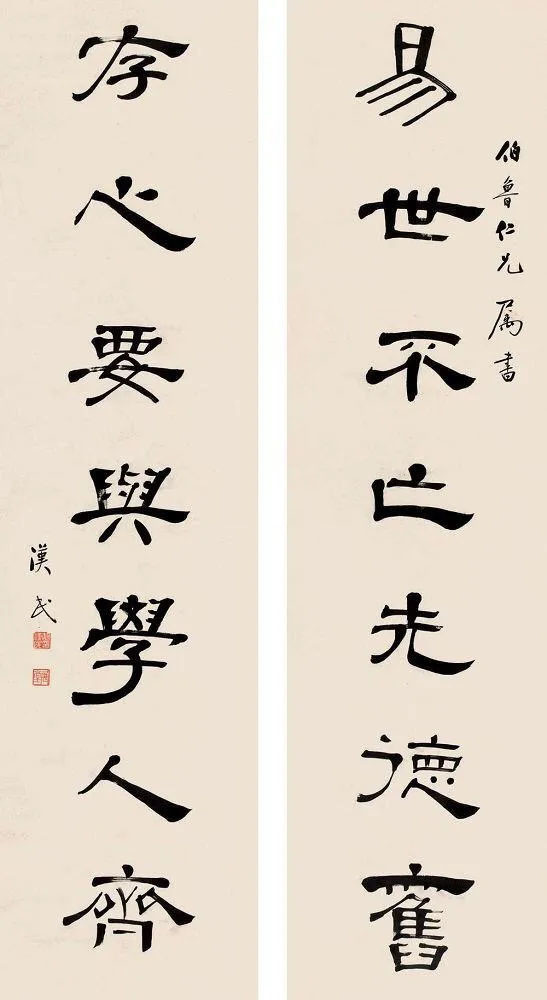 易世不亡先德舊
伯魯仁兄 属書
存心要與學人齊
漢民